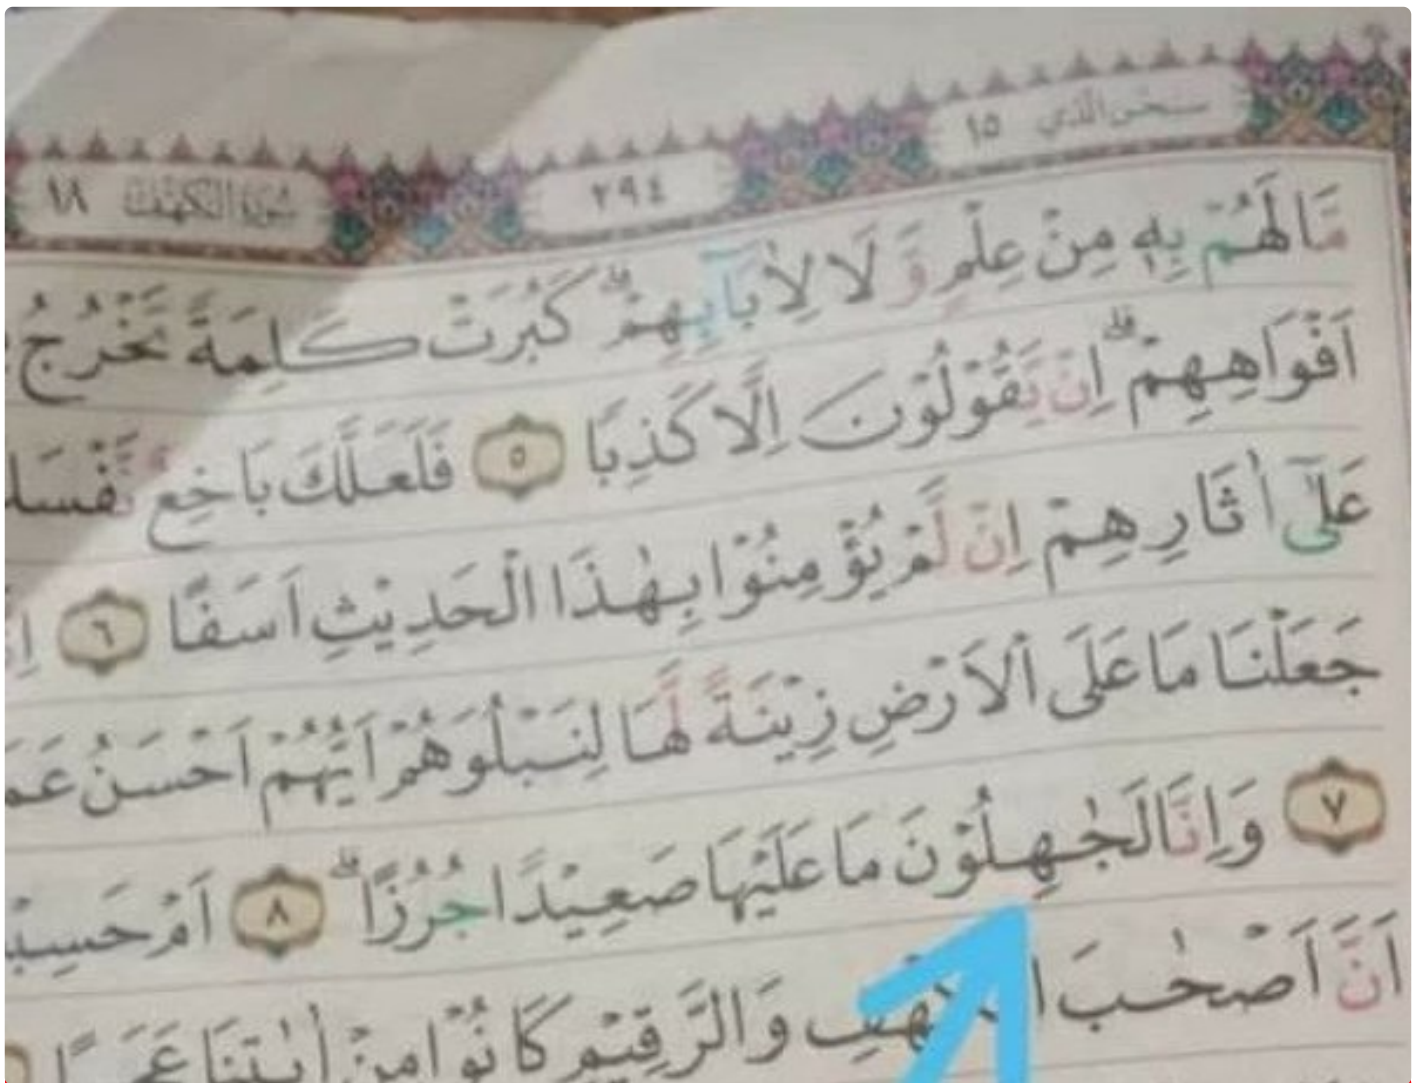 سبحن الذي ١٥ ٢٩٤ سورة الكهف ١٨
مَا لَهُمْ بِهٖ مِنْ عِلْمٍ وَّلَا لِاٰبَاۤىِٕهِمْۗ كَبُرَتْ كَلِمَةً تَخْرُجُ
اَفْوَاهِهِمْۗ اِنْ يَّقُوْلُوْنَ اِلَّا كَذِبًا ٥ فَلَعَلَّكَ بَاخِعٌ
عَلٰٓى اٰثَارِهِمْ اِنْ لَّمْ يُؤْمِنُوْا بِهٰذَا الْحَدِيْثِ اَسَفًا ٦
جَعَلْنَا مَا عَلَى الْاَرْضِ زِيْنَةً لَّهَا لِنَبْلُوَهُمْ اَيُّهُمْ اَحْسَنُ
٧ وَاِنَّا لَجٰهِلُوْنَ مَا عَلَيْهَا صَعِيْدًا جُرُزًاۗ ٨ اَمْ
اَنَّ اَصْحٰبَ الْكَهْفِ وَالرَّقِيْمِ كَانُوْا مِنْ اٰيٰتِنَا عَجَبًا